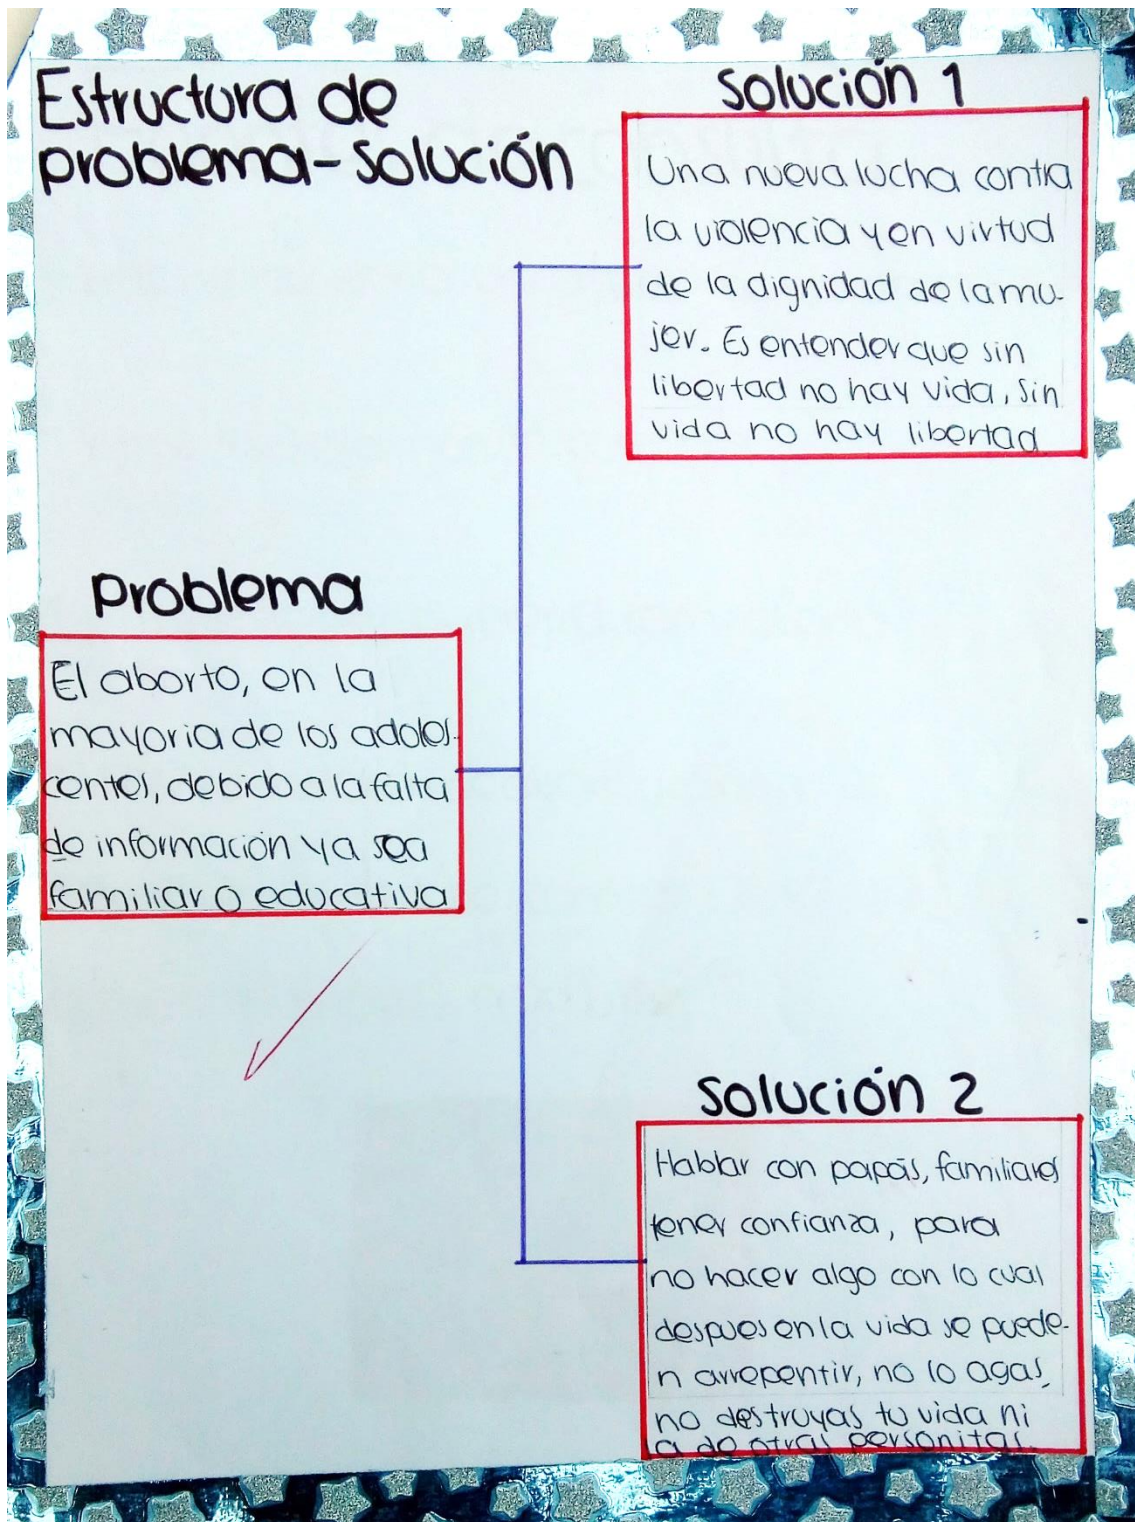 Estructura de
problema-Solución
Solución 1
Una nueva lucha contra
la violencia y en virtud
de la dignidad de la mu-
jer. Es entender que sin
libertad no hay vida, sin
vida no hay libertad
Problema
El aborto, en la
mayoria de los adoles-
centes, debido a la falta
de información ya sea
familiar o educativa
Solución 2
Hablar con papás, familiares
tener confianza, para
no hacer algo con lo cual
despues en la vida se puede-
n arrepentir, no lo agas,
no destruyas tu vida ni
a de otras personitas.